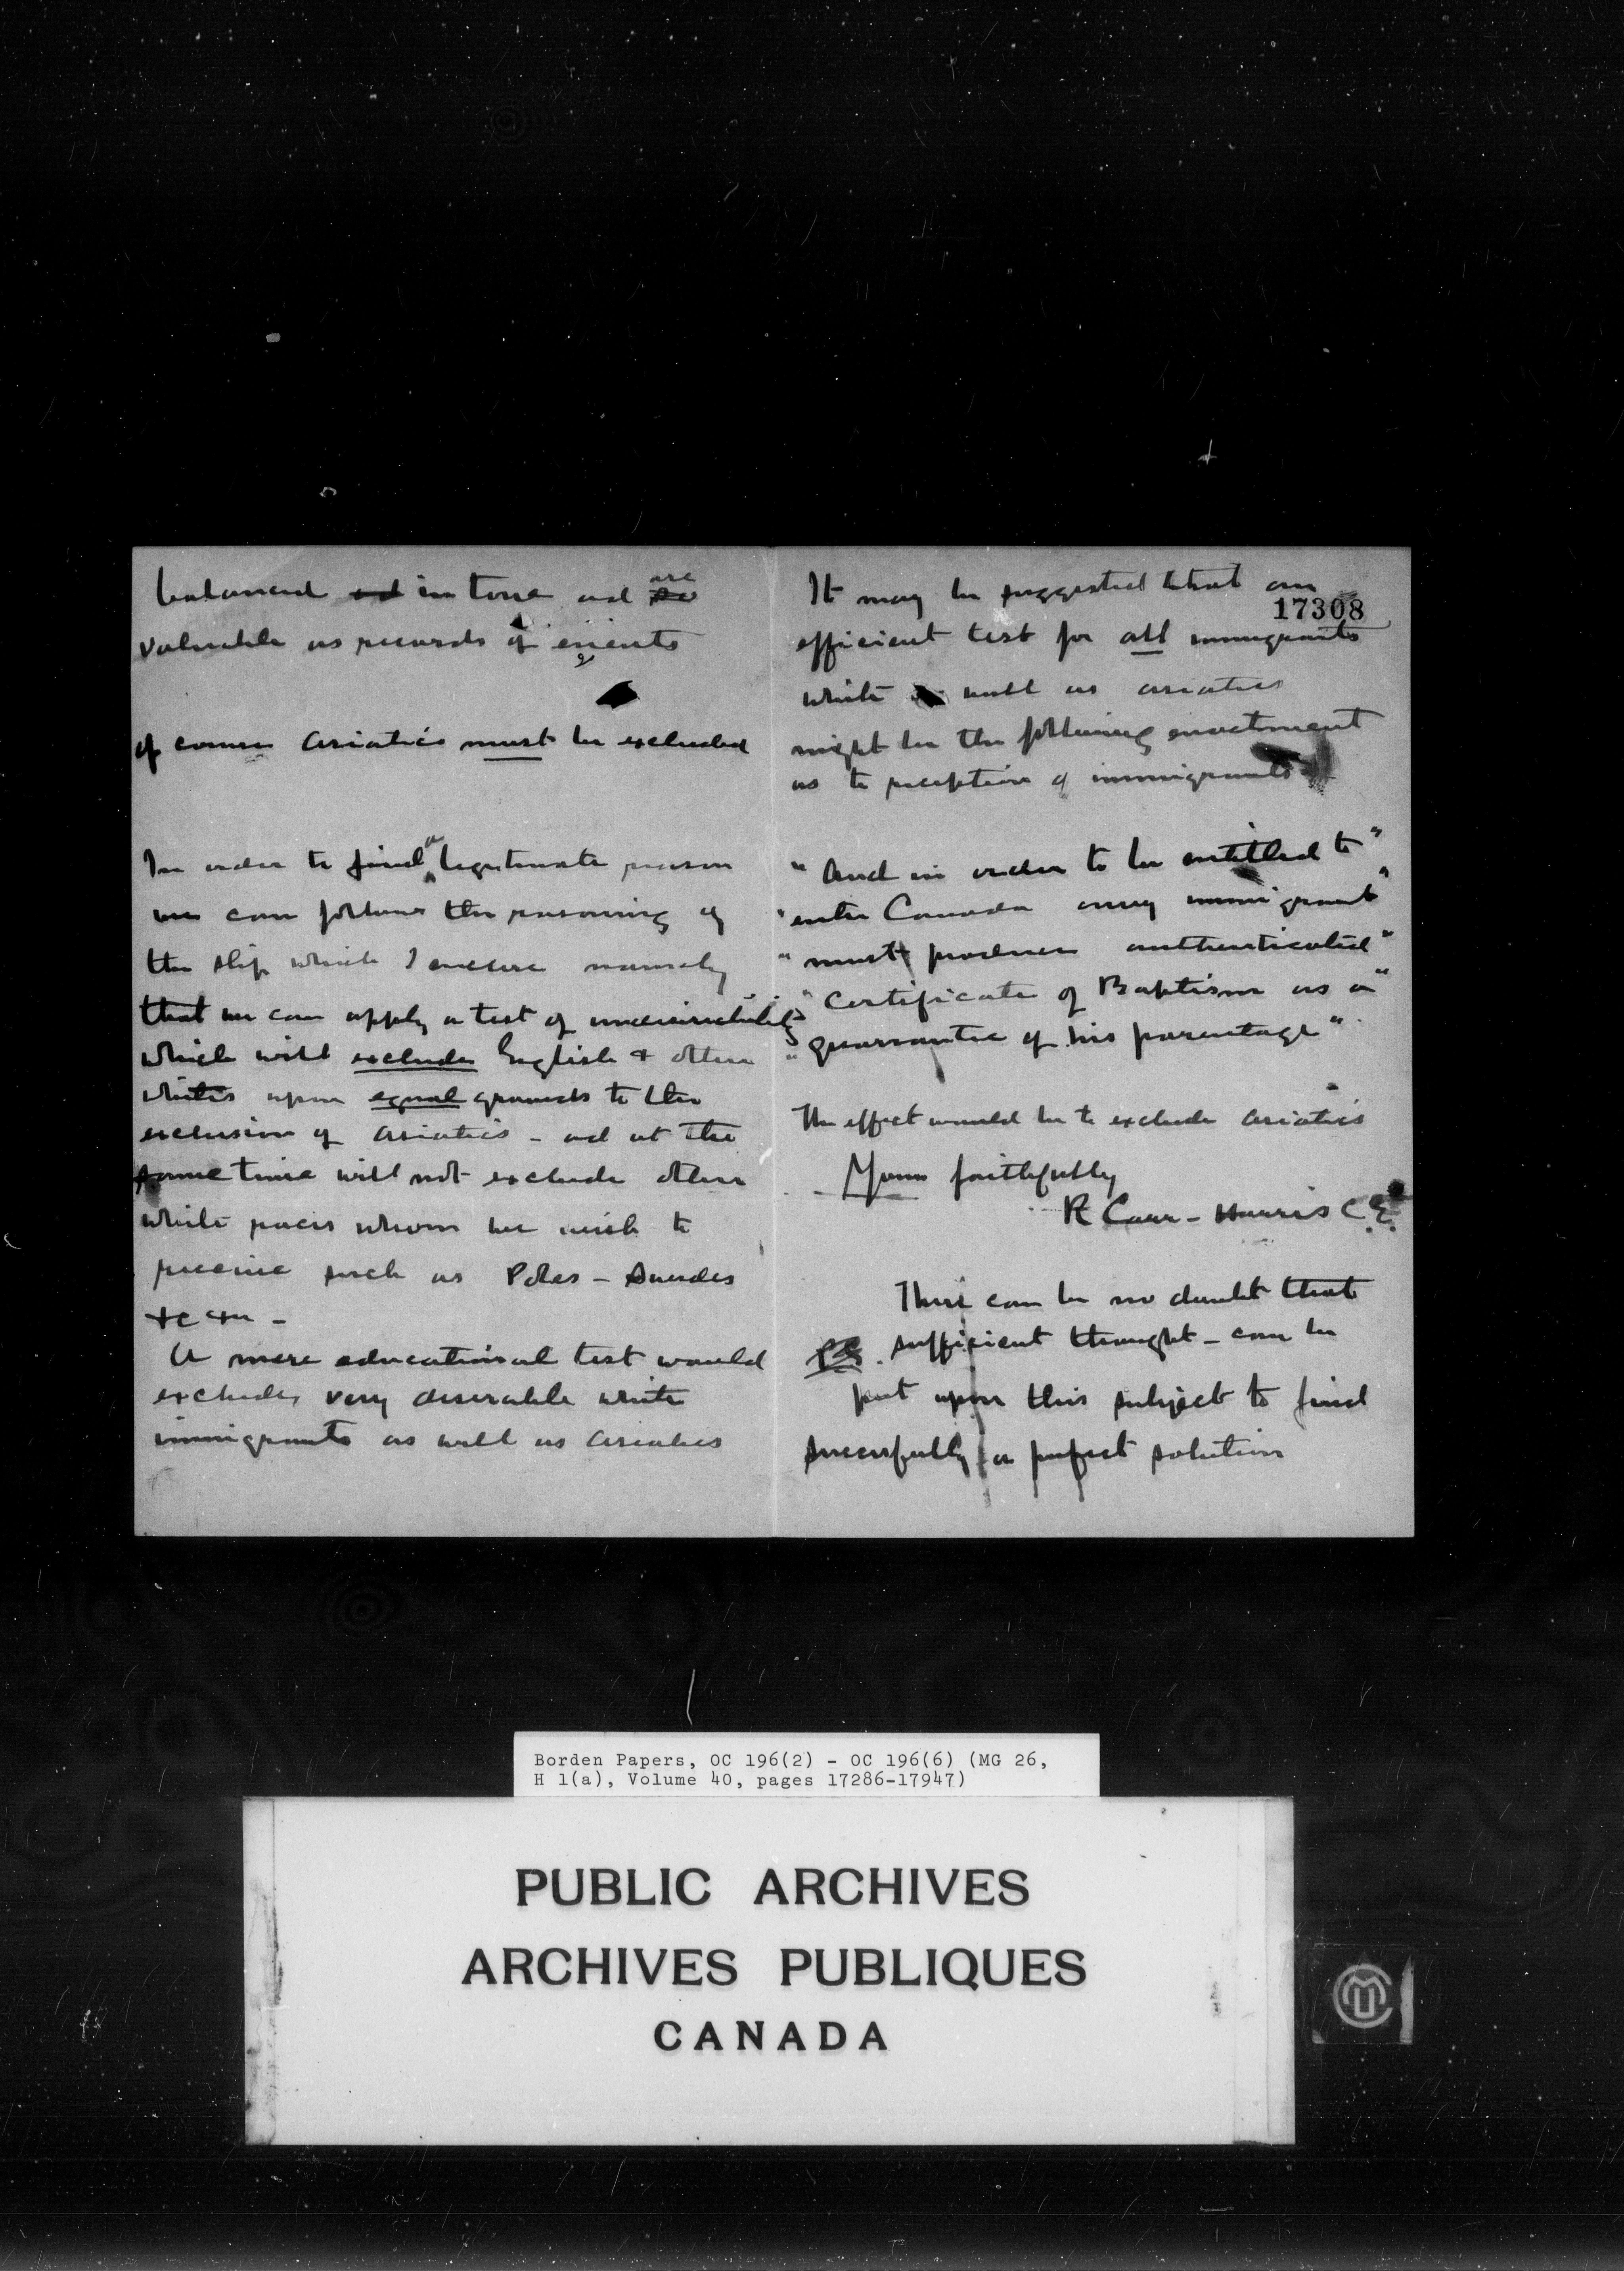 balanced in tone and are
valuable as records of events
of course Asiatics must be excluded
In order to find a legitimate reason
we can follow the reasoning of
the slip which I enclose namely
that we can apply a test of undesirability
which will exclude English & other
whites upon equal grounds to the
exclusion of Asiatics - and at the
same time will not exclude other
white races whom we wish to
receive such as Poles - Swedes
&c &c -
A mere educational test would
exclude very desirable white
immigrants as well as Asiatics
It may be suggested that an
17308
efficient test for all immigrants
white as well as asiatics
might be the following enactment
as to reception of immigrants
"And in order to be entitled to"
"enter Canada every immigrant"
"must produce authenticated"
"Certificate of Baptism as a"
"guarantee of his parentage"
The effect would be to exclude Asiatics
Yours faithfully
R Carr-Harris C.E.
There can be no doubt that
PS. sufficient thought - can be
put upon this subject to find
successfully a perfect solution
Borden Papers, OC 196(2) - OC 196(6) (MG 26,
H 1(a), Volume 40, pages 17286-17947)
PUBLIC ARCHIVES
ARCHIVES PUBLIQUES
CANADA